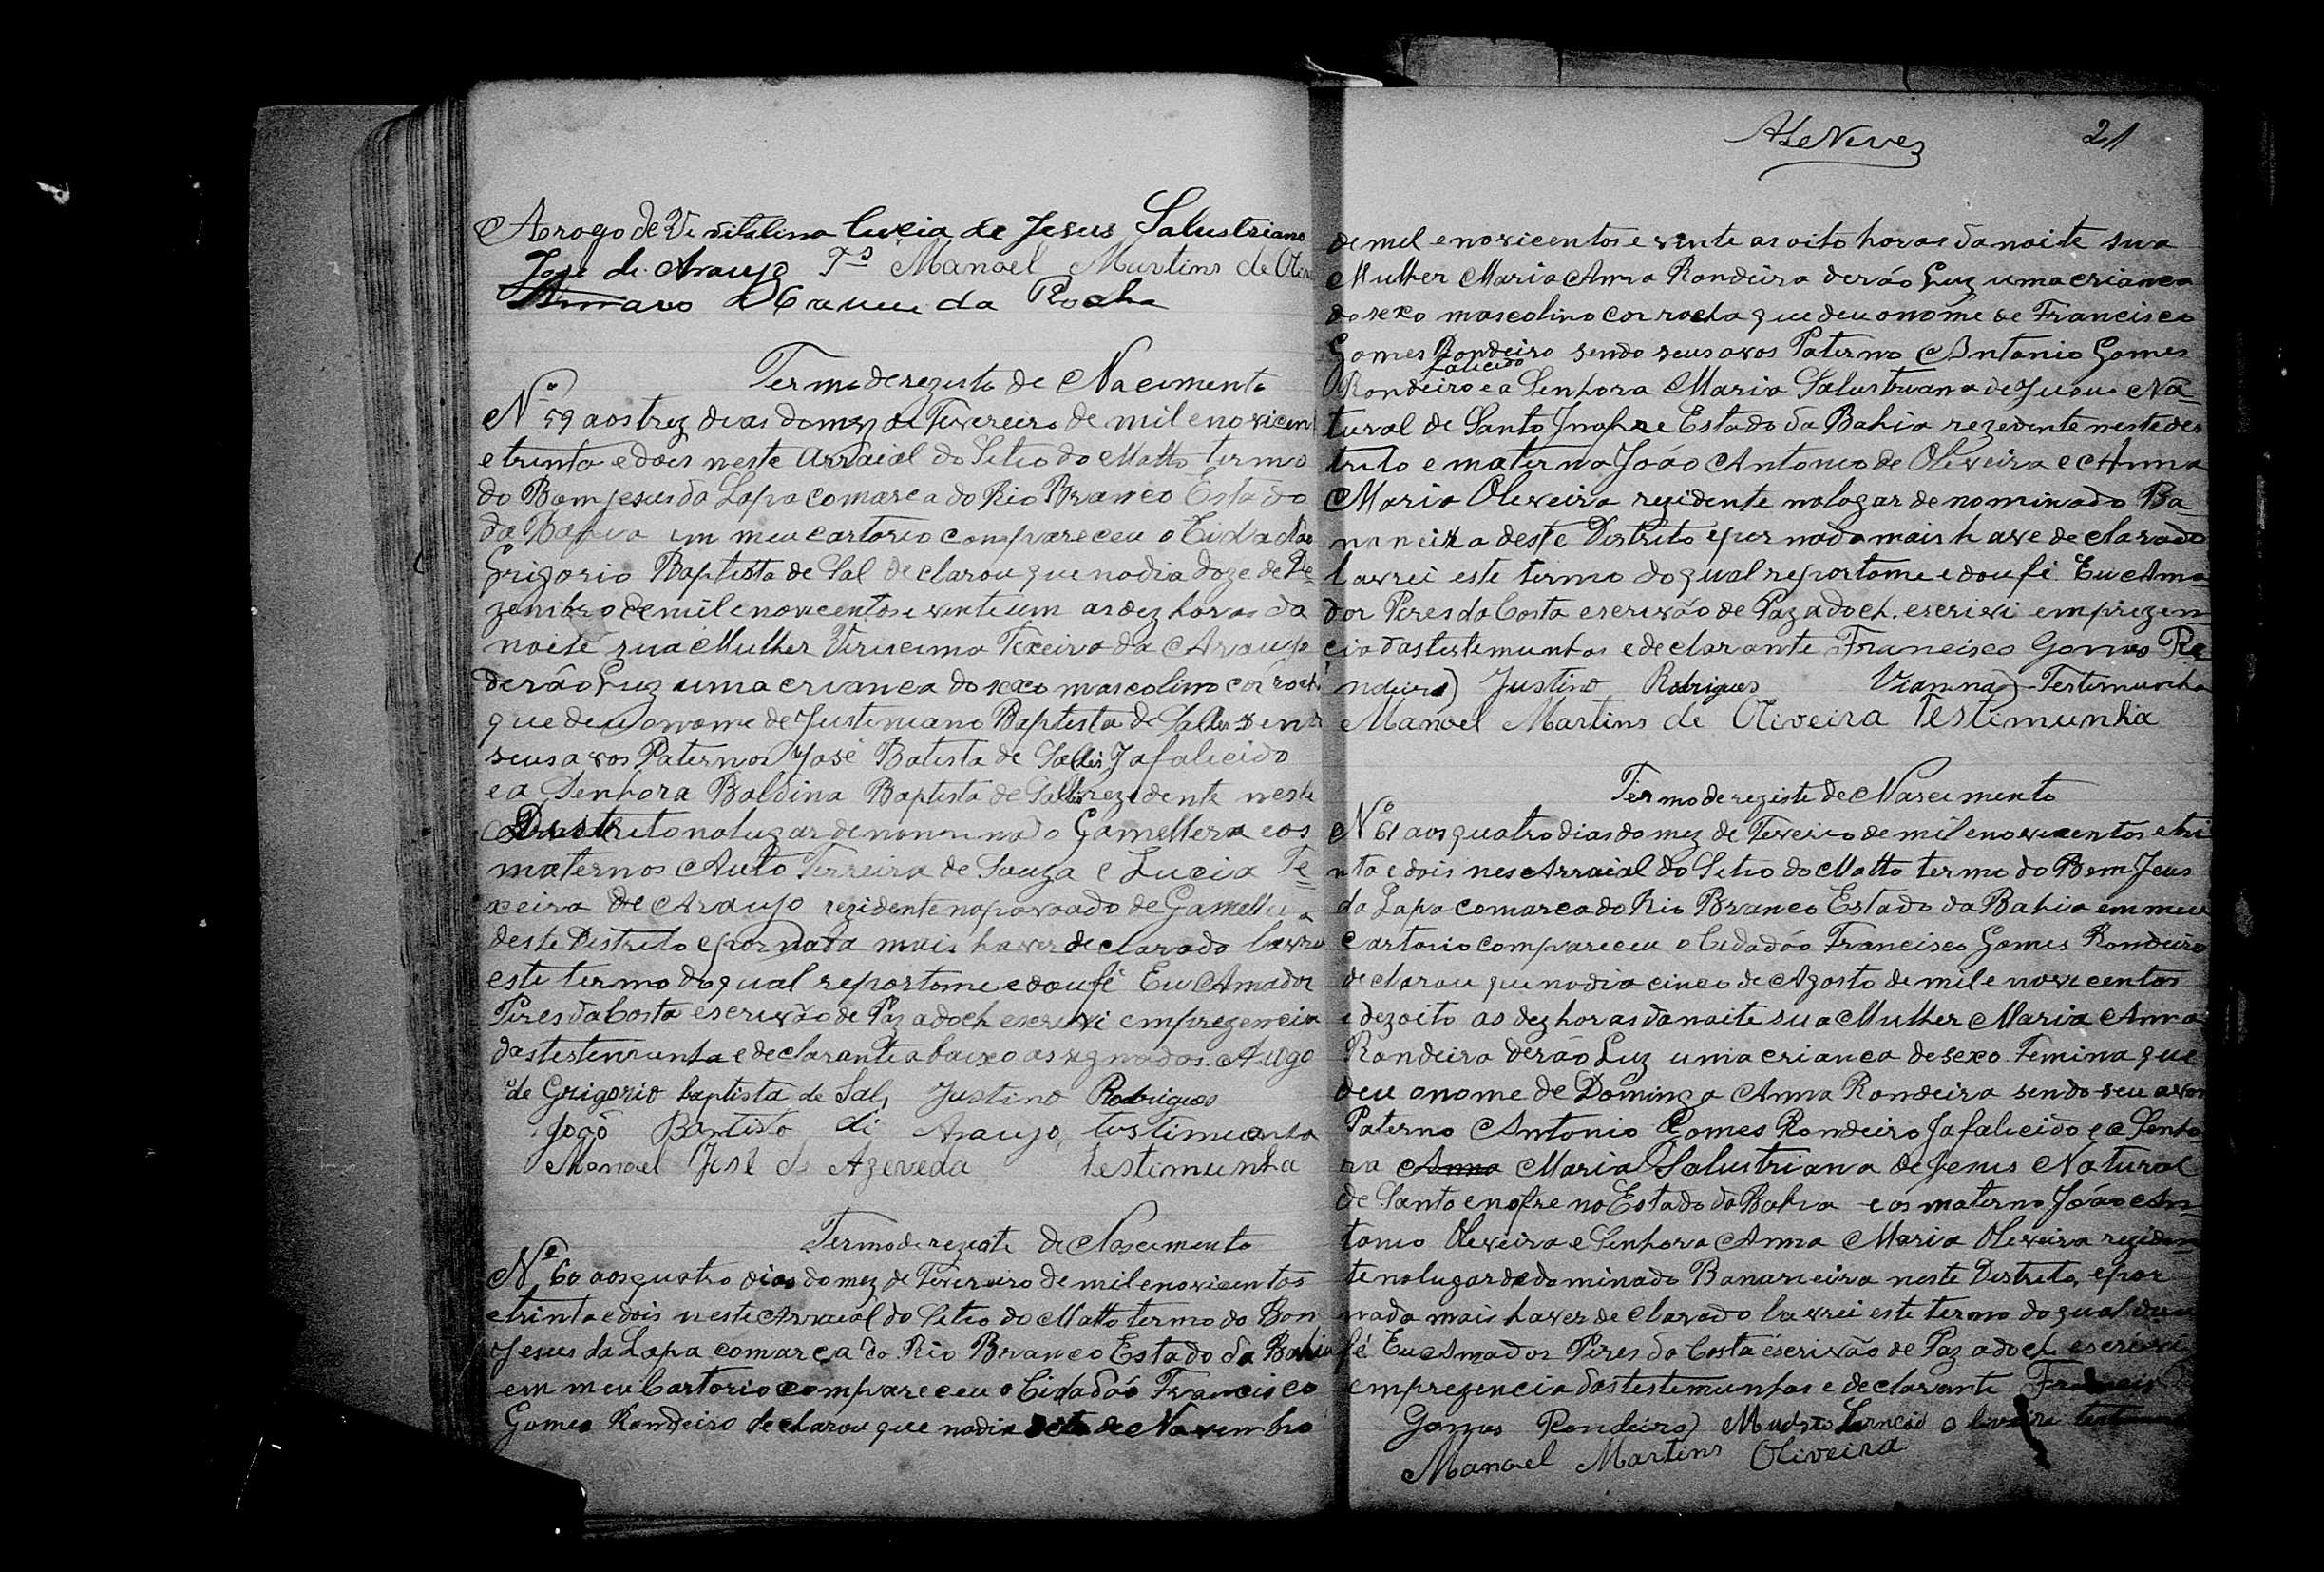 Arogo de Vi vitalina lucia de Jesus Salustriano
José de Araujo Tas Manoel Martins de Oliv
da Rocha
Termo de rezisto de Nacimento
Nº 59 aos trez dias do mez de Fevereiro de mil e novicen
e trinta e dois neste Arraial do Sitio do Matto termo
do Bom jesus da Lapa comarca do Rio Branco Estado
da Bahia em meu cartorio compareceu o Cidadão
Grigorio Baptista de Sal declarou que no dia doze de De=
zembro de mil e novecentos e vinte um as dez horas da
noite sua Mulher Texeira da Araujo
derão Luz uma crianca do sexo mascolino côr rocha
que deu o nome de Justiniano Baptista de Salles sendo
seus avos Paternos José Batista de Salles Ja falicido
e a Senhora Baldina Baptista de Salles rezidente neste
Distrito no lugar denominado Gamellera e os
maternos Auto Ferreira de Souza e Lucia Te=
xeira de Araujo rezidente no povoado de Gamellera
deste Distrito e por nada mais haver declarado lavrei
este termo do qual reportome e dou fé Eu Amador
Pires da Costa escrivão de Paz adoch escrivi em prezencia
das testemunha e declarante abaixo assignados. Arogo
de Grigorio baptista de Sal, Justino Rodrigues
João Bautista di Araujo, testimunha
Manoel José de Azeveda testimunha
Termo de reziste de Nascimento
Nº 60 aos quatro dias do mez de Fevereiro de mil e novicentos
e trinta e dois neste Arraial do Sitio do Matto termo do Bon
Jesus da Lapa comarca do Rio Branco Estado da Bahia
em meu Cartorio compareceu o Cidadão Francisco
Gomes Rondeiro declarou que no dia sete de Novembro
21
de mil e novicentos e vinte as oito horas da noite sua
Mulher Maria Anna Rondeira derão Luz uma crianca
do sexo mascolino cor rocha que deu o nome de Francisco
Gomes Rondeiro sendo seus avos Paterno Antonio Gomes
falicido
Rondeiro e a Senhora Maria Salustriana de Jesus Na=
tural de Santo Inofre Estado da Bahia rezedente neste des
trito e materna João Antonio de Oliveira e Anna
Maria Oliveira rezidente no logar denominado Ba
naneira deste Distrito e por nada mais haver declarado
lavrei este termo do qual reportome e dou fé. Eu Ama=
dor Pires da Costa escrivão de Paz adoch. escrivi em prezen
cia das testemunhas e declarante Francisco Gomes Ro
ndeiro) Justino Rodrigues Vianna) Testemunha
Manoel Martins de Oliveira testimunha
Termo de reziste de Nascimento
Nº 61 aos quatro dias do mez de Feveiro de mil e novicentos e tri
nta e dois nes Arraial do Sitio do Matto termo do Bom Jesus
da Lapa comarca do Rio Branco Estado da Bahia em meu
Cartorio compareceu o Cidadão Francisco Gomes Rondeiro
declarou que no dia cinco de Agosto de mil e novicentos
e dezoito as dez horas da noite sua Mulher Maria Anna
Rondeira derão Luz uma crianca de sexo Femina que
deu o nome de Dominga Anna Rondeira sendo seu avos
Paterno Antonio Gomes Rondeiro Ja falicido e a Senho
ra Anna Maria Salustriana de Jesus Natural
de Santo enofre no Estado da Bahia e os materno João An=
tonio Oliveira e Senhora Anna Maria Oliveira reziden
te no lugar dedominado Bananeira neste Distrito, e por
nada mais haver declarado lavrei este termo do qual dou
fé Eu Amador Pires da Costa escrivão de Paz adoch escrivi
em prezencia das testemunhas e declarante Francisco
Gomes Rondeiro)
Manoel Martins Oliveira